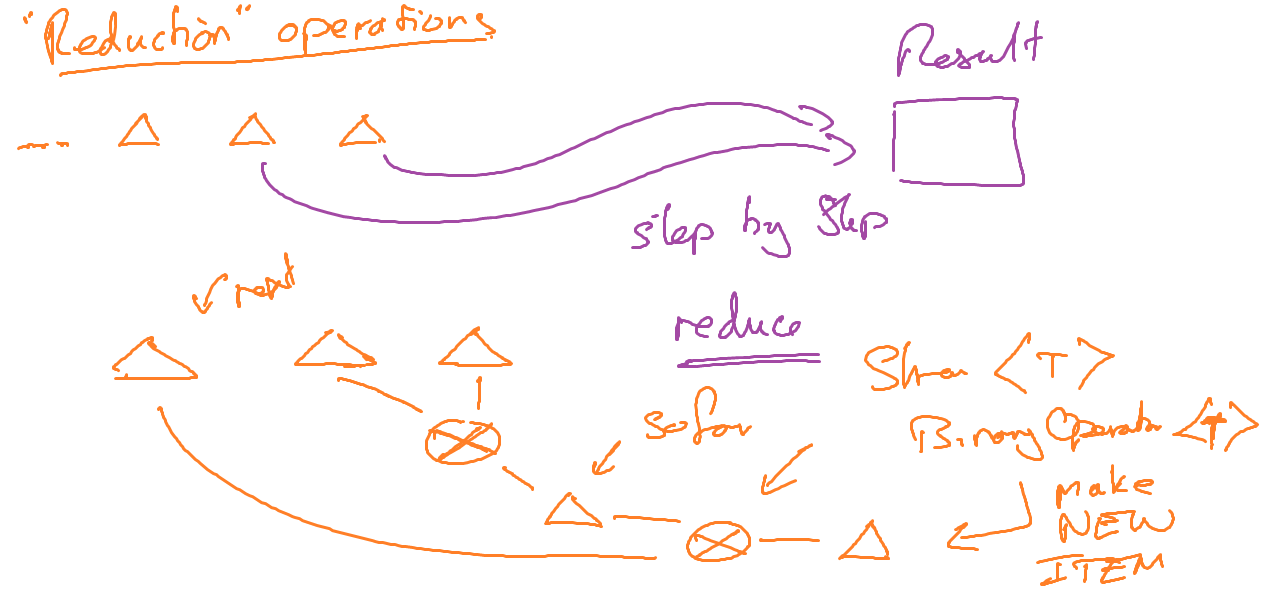 "Reduction" operations
Result
step by step
next
reduce
Stream <T>
so far
Binary Operator <T>
make
NEW
ITEM